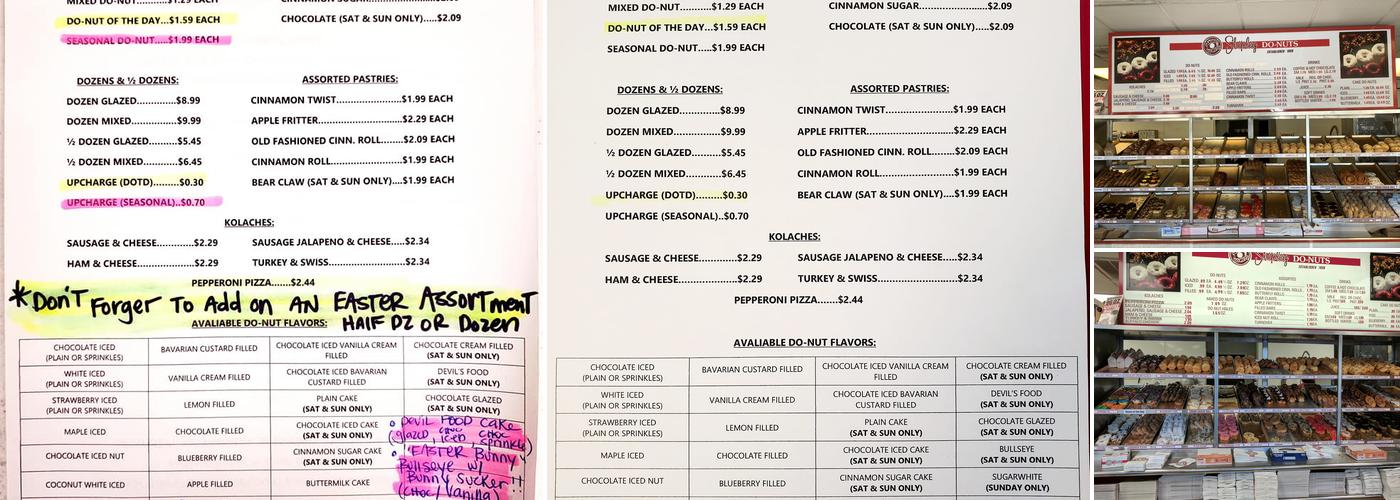 MIXED DO-NUT......$1.29 EACH
DO-NUT OF THE DAY...$1.59 EACH CHOCOLATE (SAT & SUN ONLY)....$2.09
SEASONAL DO-NUT.....$1.99 EACH
DOZENS & ½ DOZENS: ASSORTED PASTRIES:
DOZEN GLAZED.............$8.99 CINNAMON TWIST..............$1.99 EACH
DOZEN MIXED..............$9.99 APPLE FRITTER.................$2.29 EACH
½ DOZEN GLAZED........$5.45 OLD FASHIONED CINN. ROLL......$2.09 EACH
½ DOZEN MIXED.........$6.45 CINNAMON ROLL..............$1.99 EACH
UPCHARGE (DOTD)........$0.30 BEAR CLAW (SAT & SUN ONLY)....$1.99 EACH
UPCHARGE (SEASONAL)..$0.70
KOLACHES:
SAUSAGE & CHEESE............$2.29 SAUSAGE JALAPENO & CHEESE.....$2.34
HAM & CHEESE..................$2.29 TURKEY & SWISS..................$2.34
PEPPERONI PIZZA.......$2.44
*Don'T Forger To Add on AN EASTER ASSortment
AVALIABLE DO-NUT FLAVORS: HAlF DZ OR Dozen
CHOCOLATE ICED (PLAIN OR SPRINKLES) BAVARIAN CUSTARD FILLED CHOCOLATE ICED VANILLA CREAM FILLED CHOCOLATE CREAM FILLED (SAT & SUN ONLY)
WHITE ICED (PLAIN OR SPRINKLES) VANILLA CREAM FILLED CHOCOLATE ICED BAVARIAN CUSTARD FILLED DEVIL'S FOOD (SAT & SUN ONLY)
STRAWBERRY ICED (PLAIN OR SPRINKLES) LEMON FILLED PLAIN CAKE (SAT & SUN ONLY) CHOCOLATE GLAZED (SAT & SUN ONLY)
MAPLE ICED CHOCOLATE FILLED CHOCOLATE ICED CAKE (SAT & SUN ONLY)
CHOCOLATE ICED NUT BLUEBERRY FILLED CINNAMON SUGAR CAKE (SAT & SUN ONLY)
COCONUT WHITE ICED APPLE FILLED BUTTERMILK CAKE
DEVIL FOOD CAKE
(glazed, choc iced, choc sprinkle)
"EASTER Bunny"
Bullseye w/
Bunny Sucker!!
(CHOC/Vanilla)
MIXED DO-NUT...........$1.29 EACH CINNAMON SUGAR.................$2.09
DO-NUT OF THE DAY...$1.59 EACH CHOCOLATE (SAT & SUN ONLY).....$2.09
SEASONAL DO-NUT.....$1.99 EACH
DOZENS & ½ DOZENS: ASSORTED PASTRIES:
DOZEN GLAZED.............$8.99 CINNAMON TWIST..............$1.99 EACH
DOZEN MIXED..............$9.99 APPLE FRITTER.................$2.29 EACH
½ DOZEN GLAZED........$5.45 OLD FASHIONED CINN. ROLL......$2.09 EACH
½ DOZEN MIXED.........$6.45 CINNAMON ROLL..............$1.99 EACH
UPCHARGE (DOTD).........$0.30 BEAR CLAW (SAT & SUN ONLY)....$1.99 EACH
UPCHARGE (SEASONAL)..$0.70
KOLACHES:
SAUSAGE & CHEESE............$2.29 SAUSAGE JALAPENO & CHEESE.....$2.34
HAM & CHEESE..................$2.29 TURKEY & SWISS..................$2.34
PEPPERONI PIZZA.......$2.44
AVALIABLE DO-NUT FLAVORS:
CHOCOLATE ICED (PLAIN OR SPRINKLES) BAVARIAN CUSTARD FILLED CHOCOLATE ICED VANILLA CREAM FILLED CHOCOLATE CREAM FILLED (SAT & SUN ONLY)
WHITE ICED (PLAIN OR SPRINKLES) VANILLA CREAM FILLED CHOCOLATE ICED BAVARIAN CUSTARD FILLED DEVIL'S FOOD (SAT & SUN ONLY)
STRAWBERRY ICED (PLAIN OR SPRINKLES) LEMON FILLED PLAIN CAKE (SAT & SUN ONLY) CHOCOLATE GLAZED (SAT & SUN ONLY)
MAPLE ICED CHOCOLATE FILLED CHOCOLATE ICED CAKE (SAT & SUN ONLY) BULLSEYE (SAT & SUN ONLY)
CHOCOLATE ICED NUT BLUEBERRY FILLED CINNAMON SUGAR CAKE (SAT & SUN ONLY) SUGARWHITE (SUNDAY ONLY)
Shipley DO-NUTS
DO-NUTS
DRINKS
KOLACHES
Shipley DO-NUTS
DO-NUTS
KOLACHES